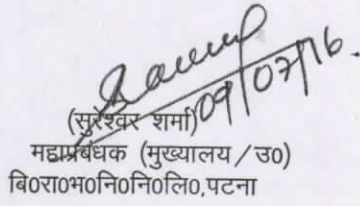 09/07/16.
(सुरेश्वर शर्मा)
महाप्रबंधक (मुख्यालय/उ०)
बि०रा०भ०नि०नि०लि०,पटना